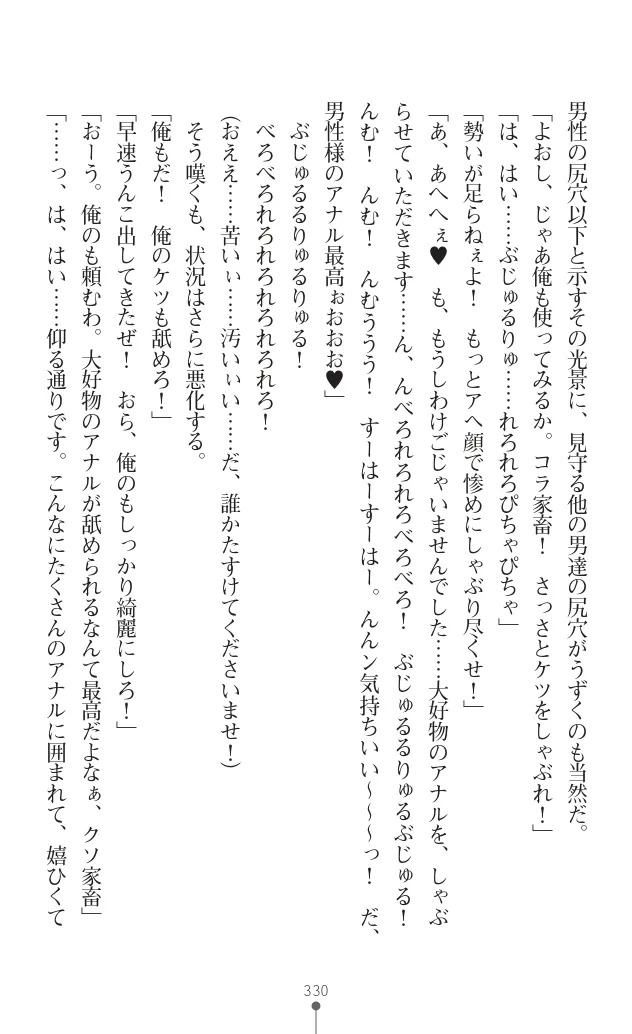 男性の尻穴以下と示すその光景に、見守る他の男達の尻穴がうずくのも当然だ。
「よおし、じゃあ俺も使ってみるか。コラ家畜！　さっさとケツをしゃぶれ！」
「は、はい……ぶじゅるりゅ……れろれろぴちゃぴちゃ」
「勢いが足らねぇよ！　もっとアヘ顔で惨めにしゃぶり尽くせ！」
「あ、あへへぇ♥　も、もうしわけごじゃいませんでした……大好物のアナルを、しゃぶ
らせていただきます……ん、んべろれろれろべろべろ！　ぶじゅるるりゅるぶじゅる！
んむ！　んむ！　んむううう！　すーはーすーはー。んんン気持ちいい～～～っ！　だ、
男性様のアナル最高ぉおおお♥」
ぶじゅるるりゅるりゅる！
べろべろれろれろれろれろ！
（おええ……苦いぃ……汚いぃぃ……だ、誰かたすけてくださいませ！）
そう嘆くも、状況はさらに悪化する。
「俺もだ！　俺のケツも舐めろ！」
「早速うんこ出してきたぜ！　おら、俺のもしっかり綺麗にしろ！」
「おーう。俺のも頼むわ。大好物のアナルが舐められるなんて最高だよなぁ、クソ家畜」
「……っ、は、はい……仰る通りです。こんなにたくさんのアナルに囲まれて、嬉ひくて
330